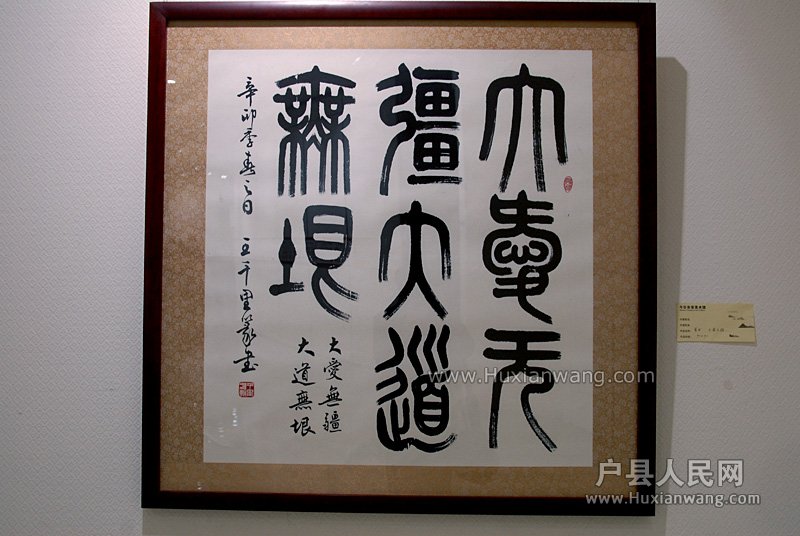 大愛无
疆大道
無垠
大愛無疆
大道無垠
辛卯季春之日 王千里篆书
www.Huxianwang.com
户县人民网
www.Huxianwang.com